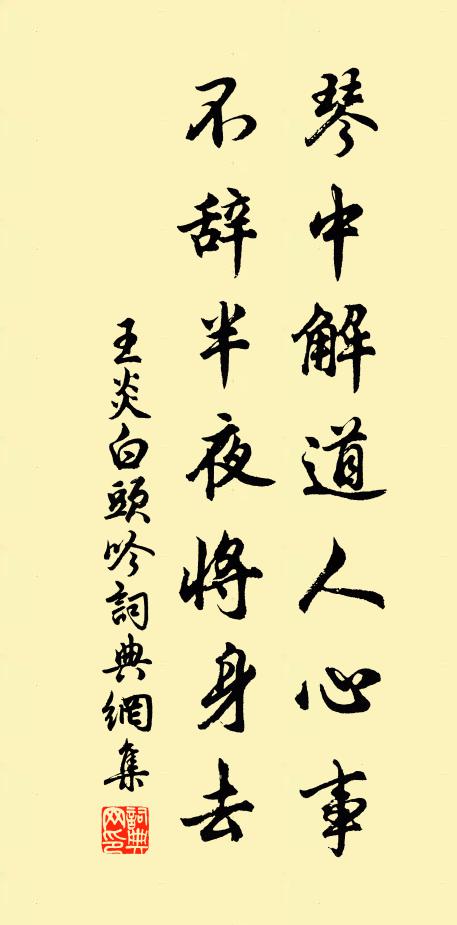 琴中解道人心事
不辞半夜將身去
王炎白頭吟詞典網集
詞典
网印